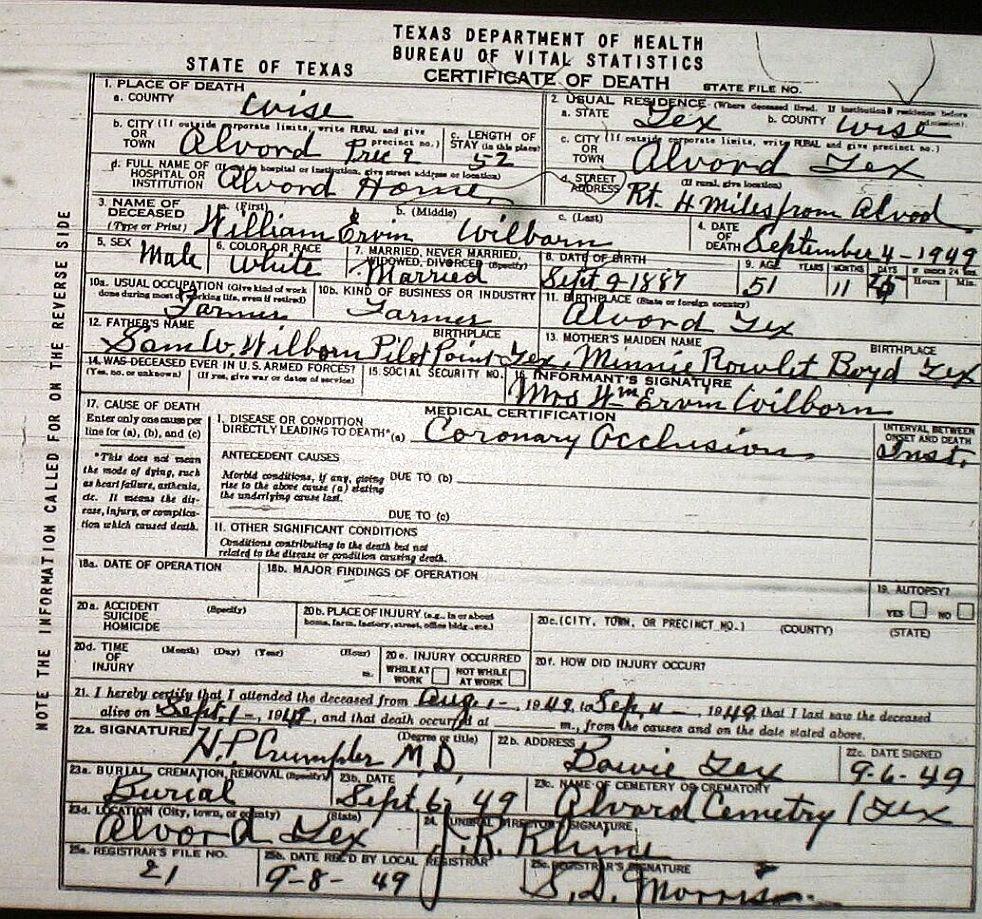 TEXAS DEPARTMENT OF HEALTH
BUREAU OF VITAL STATISTICS
STATE OF TEXAS CERTIFICATE OF DEATH STATE FILE NO.
1. PLACE OF DEATH
a. COUNTY Wise
2. USUAL RESIDENCE (Where deceased lived. If institution: residence before admission).
a. STATE Tex b. COUNTY Wise
b. CITY (If outside corporate limits, write RURAL and give precinct no.)
OR TOWN Alvord Prec 9
c. LENGTH OF STAY (in this place) 52
c. CITY (If outside corporate limits, write RURAL and give precinct no.)
OR TOWN Alvord Tex
d. FULL NAME OF HOSPITAL OR INSTITUTION (If not in hospital or institution, give street address or location)
Alvord Home
d. STREET ADDRESS (If rural, give location)
Rt. 4 miles from Alvod
3. NAME OF DECEASED (Type or Print)
a. (First) b. (Middle) c. (Last)
William Ervin Wilborn
4. DATE OF DEATH September 4-1949
5. SEX Male
6. COLOR OR RACE White
7. MARRIED, NEVER MARRIED, WIDOWED, DIVORCED (Specify) Married
8. DATE OF BIRTH Sept 9-1887
9. AGE YEARS MONTHS DAYS IF UNDER 24 HRS. Hours Min.
51 11
10a. USUAL OCCUPATION (Give kind of work done during most of working life, even if retired)
Farmer
10b. KIND OF BUSINESS OR INDUSTRY
Farmer
11. BIRTHPLACE (State or foreign country)
Alvord Tex
12. FATHER'S NAME BIRTHPLACE
Sam W. Wilborn Pilot Point Tex
13. MOTHER'S MAIDEN NAME BIRTHPLACE
Minnie Rowlet Boyd Tex
14. WAS DECEASED EVER IN U.S. ARMED FORCES?
(Yes, no, or unknown) (If yes, give war or dates of service)
15. SOCIAL SECURITY NO.
16. INFORMANT'S SIGNATURE
Mrs Wm Ervin Wilborn
17. CAUSE OF DEATH
Enter only one cause per line for (a), (b), and (c)
*This does not mean the mode of dying, such as heart failure, asthenia, etc. It means the disease, injury, or complication which caused death.
MEDICAL CERTIFICATION
I. DISEASE OR CONDITION
DIRECTLY LEADING TO DEATH*(a) Coronary Occlusion
INTERVAL BETWEEN ONSET AND DEATH
Inst.
ANTECEDENT CAUSES
Morbid conditions, if any, giving rise to the above cause (a) stating the underlying cause last.
DUE TO (b)
DUE TO (c)
II. OTHER SIGNIFICANT CONDITIONS
Conditions contributing to the death but not related to the disease or condition causing death.
18a. DATE OF OPERATION
18b. MAJOR FINDINGS OF OPERATION
19. AUTOPSY?
YES NO
20a. ACCIDENT SUICIDE HOMICIDE (Specify)
20b. PLACE OF INJURY (e.g., in or about home, farm, factory, street, office bldg., etc.)
20c. (CITY, TOWN, OR PRECINCT NO.) (COUNTY) (STATE)
20d. TIME OF INJURY (Month) (Day) (Year) (Hour) m.
20e. INJURY OCCURRED
WHILE AT WORK NOT WHILE AT WORK
20f. HOW DID INJURY OCCUR?
21. I hereby certify that I attended the deceased from Aug 1-, 1949, to Sep, 4 -, 1949, that I last saw the deceased
alive on Sept. 1-, 1949, and that death occurred at m., from the causes and on the date stated above.
22a. SIGNATURE (Degree or title)
H.P. Crumpler M.D.
22b. ADDRESS
Bowie Tex
22c. DATE SIGNED
9-6-49
23a. BURIAL, CREMATION, REMOVAL (Specify)
Burial
23b. DATE
Sept. 6, 49
23c. NAME OF CEMETERY OR CREMATORY
Alvord Cemetery Tex
23d. LOCATION (City, town, or county) (State)
Alvord Tex
24. FUNERAL DIRECTOR'S SIGNATURE
J.R.
25a. REGISTRAR'S FILE NO.
21
25b. DATE REC'D BY LOCAL REGISTRAR
9-8-49
25c. REGISTRAR'S SIGNATURE
S.D. Morrison
NOTE THE INFORMATION CALLED FOR ON THE REVERSE SIDE